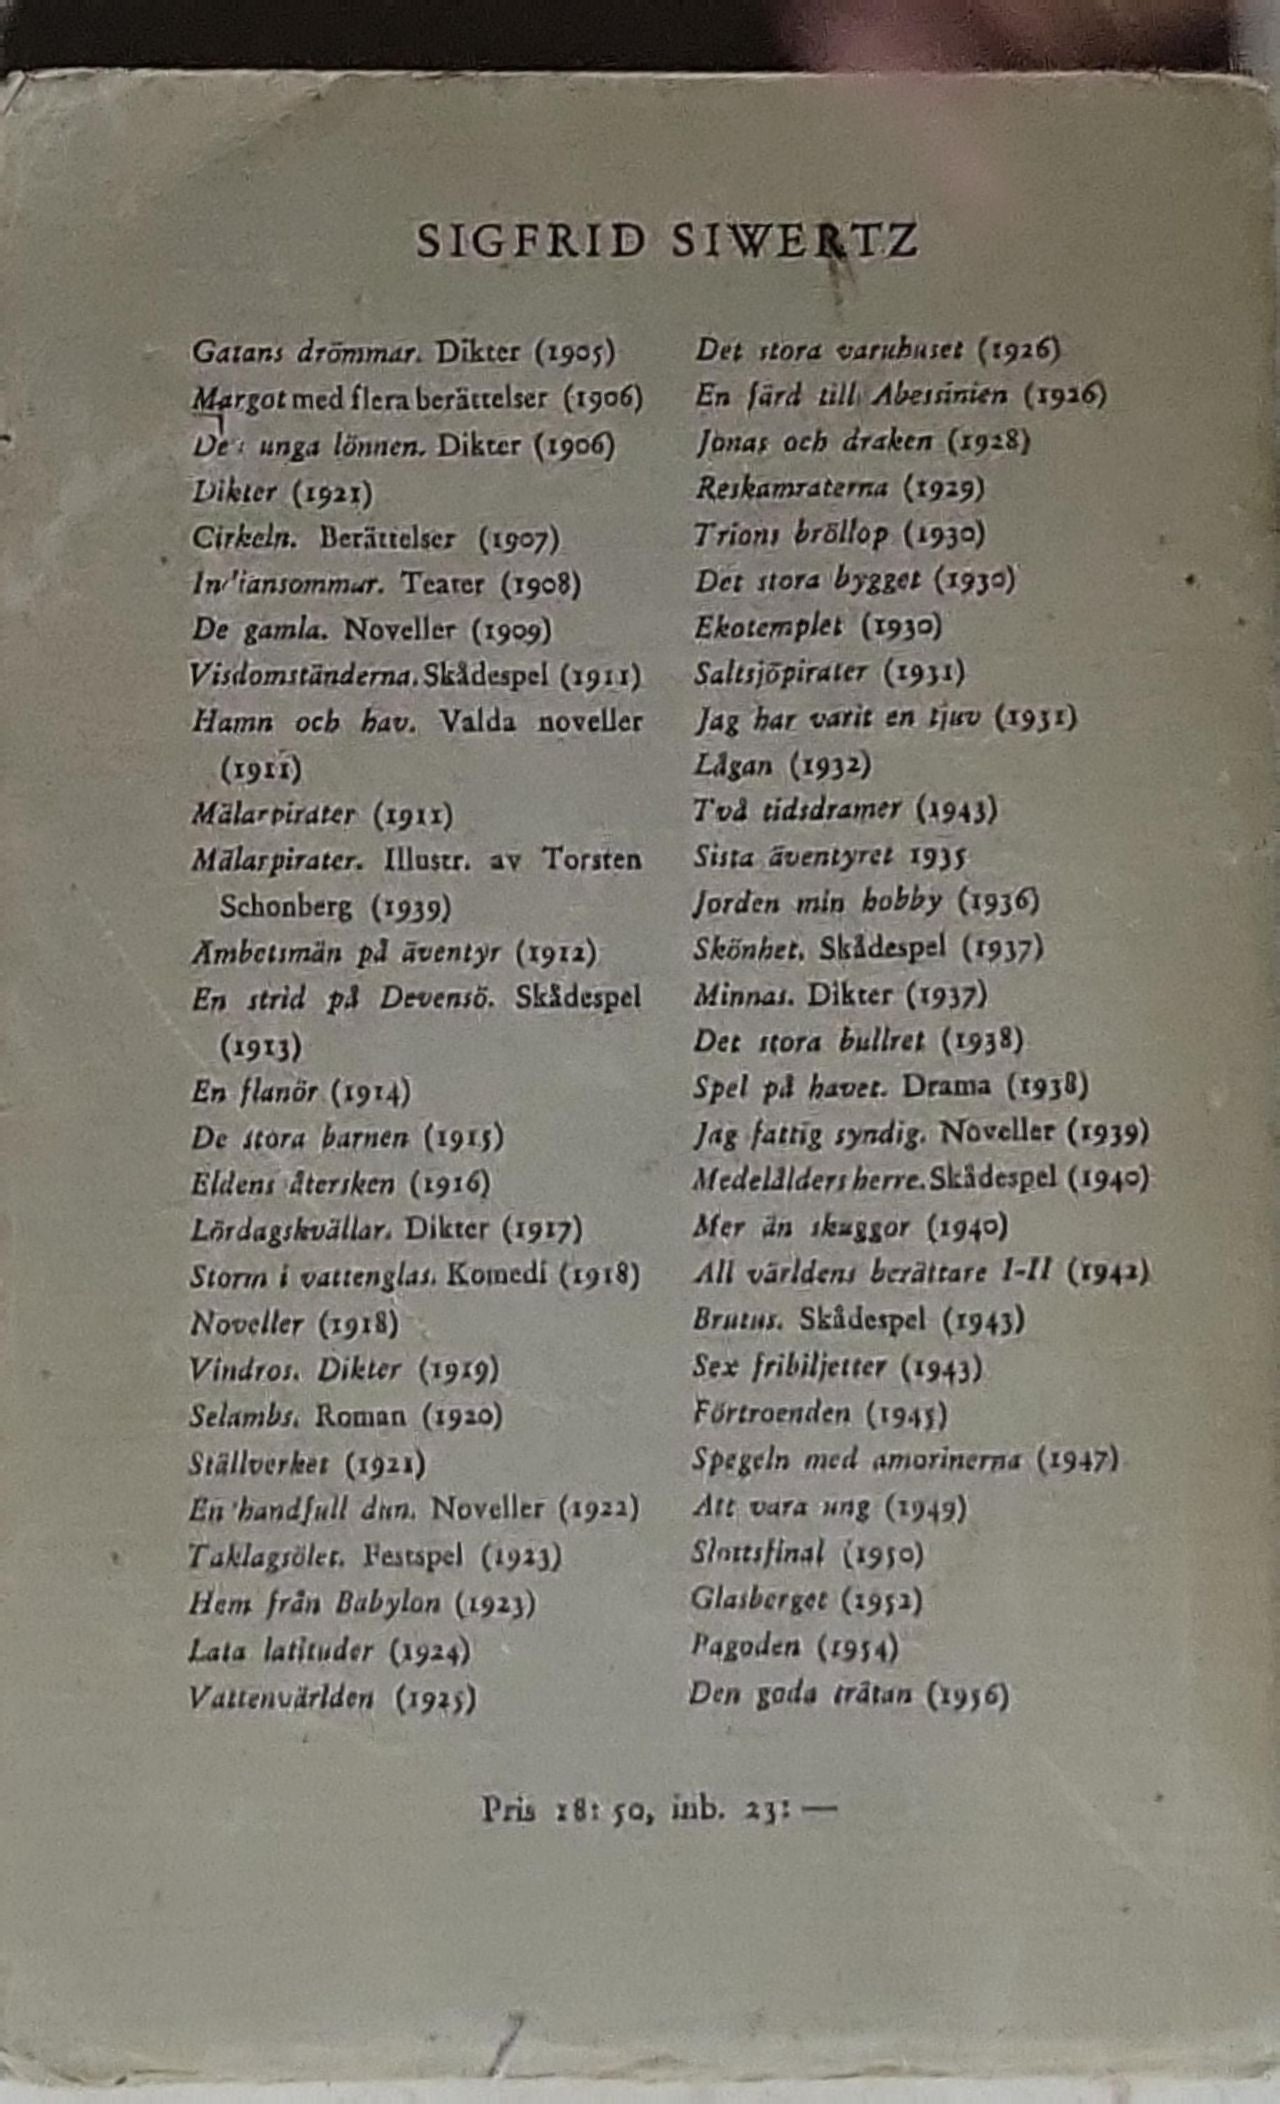 SIGFRID SIWERTZ
Gatans drömmar. Dikter (1905)
Margot med flera berättelser (1906)
De unga lönnen. Dikter (1906)
Dikter (1921)
Cirkeln. Berättelser (1907)
Indiansommar. Teater (1908)
De gamla. Noveller (1909)
Visdomständerna. Skådespel (1911)
Hamn och hav. Valda noveller
(1911)
Mälarpirater (1911)
Mälarpirater. Illustr. av Torsten
Schonberg (1939)
Ämbetsmän på äventyr (1912)
En strid på Devensö. Skådespel
(1913)
En flanör (1914)
De stora barnen (1915)
Eldens återsken (1916)
Lördagskvällar. Dikter (1917)
Storm i vattenglas. Komedi (1918)
Noveller (1918)
Vindros. Dikter (1919)
Selambs. Roman (1920)
Ställverket (1921)
En handfull dun. Noveller (1922)
Taklagsölet. Festspel (1923)
Hem från Babylon (1923)
Lata latituder (1924)
Vattenvärlden (1925)
Det stora varuhuset (1926)
En färd till Abessinien (1926)
Jonas och draken (1928)
Reskamraterna (1929)
Trions bröllop (1930)
Det stora bygget (1930)
Ekotemplet (1930)
Saltsjöpirater (1931)
Jag har varit en tjuv (1931)
Lågan (1932)
Två tidsdramer (1943)
Sista äventyret 1935
Jorden min hobby (1936)
Skönhet. Skådespel (1937)
Minnas. Dikter (1937)
Det stora bullret (1938)
Spel på havet. Drama (1938)
Jag fattig syndig. Noveller (1939)
Medelålders herre. Skådespel (1940)
Mer än skuggor (1940)
All världens berättare I-II (1942)
Brutus. Skådespel (1943)
Sex fribiljetter (1943)
Förtroenden (1945)
Spegeln med amorinerna (1947)
Att vara ung (1949)
Slottsfinal (1950)
Glasberget (1952)
Pagoden (1954)
Den goda trätan (1956)
Pris 18: 50, inb. 23: —